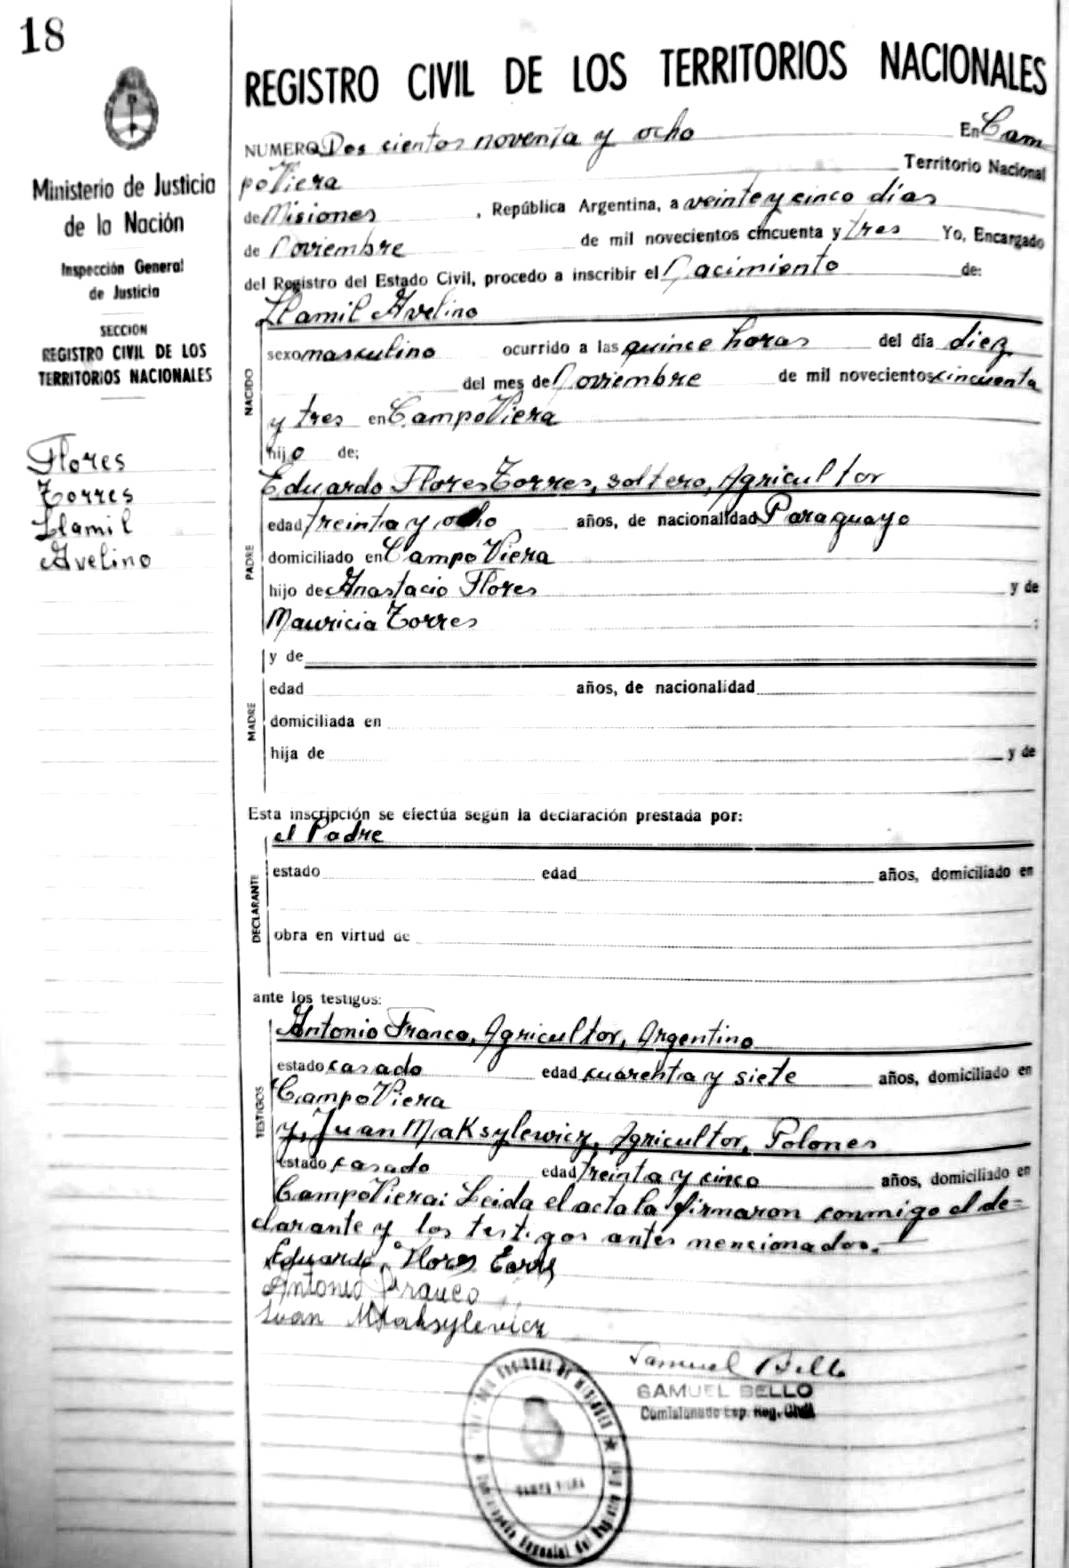 18
REGISTRO CIVIL DE LOS TERRITORIOS NACIONALES
Ministerio de Justicia
de la Nación
Inspección General
de Justicia
SECCION
REGISTRO CIVIL DE LOS
TERRITORIOS NACIONALES
Flores
Torres
Llamil
Avelino
NUMERO Dos cientos noventa y ocho En Cam
po Viera Territorio Nacional
de Misiones , República Argentina, a veinte y cinco días
de Noviembre de mil novecientos cincuenta y tres Yo, Encargado
del Registro del Estado Civil, procedo a inscribir el Nacimiento de:
Llamil Avelino
NACIDO
sexo masculino ocurrido a las quince horas del día diez
del mes de Noviembre de mil novecientos cincuenta
y tres en Campo Viera
hijo de;
Eduardo Flores Torres, soltero, Agricultor
PADRE
edad treinta y ocho años, de nacionalidad Paraguayo
domiciliado en Campo Viera
hijo de Anastacio Flores y de
Mauricia Torres :
MADRE
y de
edad años, de nacionalidad
domiciliada en
hija de y de
Esta inscripción se efectúa según la declaración prestada por:
el Padre
DECLARANTE
estado edad años, domiciliado en
obra en virtud de
ante los testigos:
TESTIGOS
Antonio Franco, Agricultor, Argentino
estado casado edad cuarenta y siete años, domiciliado en
Campo Viera
y, Juan Maksylewicz, Agricultor, Polones
estado casado edad treinta y cinco años, domiciliado en
Campo Viera: Leida el acta la firmaron conmigo el de=
clarante y los testigos antes mencionados.—
Eduardo Flores Torres
Antonio Franco
Juan Maksylevicz
Samuel Bello
SAMUEL BELLO
Comisionado Esp. Reg. Civil
CAMPO VIERA